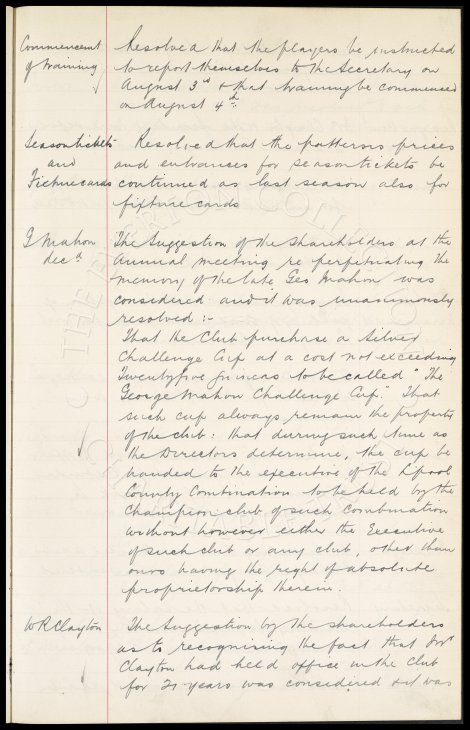 Commencemt
of training
Resolved that the players be instructed
to report themselves to the Secretary on
August 3rd & that training be commenced
on August 4th.
Season tickets
and
Fixture cards
Resolved that the patterns prices
and entrances for season tickets be
continued as last season also for
fixture cards
G Mahon
decd
The Suggestion of the shareholders at the
Annual meeting re perpetuating the
memory of the late Geo Mahon was
considered and it was unanimously
resolved :-
That the Club purchase a Silver
Challenge Cup at a cost not exceeding
Twentyfive guineas to be called "The
George Mahon Challenge Cup." That
such cup always remain the property
of the club: that during such time as
the Directors determine, the cup be
handed to the executive of the Lpool
County Combination to be held by the
Champion club of such Combination
without however either the Executive
of such club or any club, other than
ours having the right of absolute
proprietorship therein.
W R Clayton
The Suggestion by the shareholders
as to recognising the fact that Mr
Clayton had held office in the Club
for 21 years was considered & it was
THE EVERTON COLLECTION